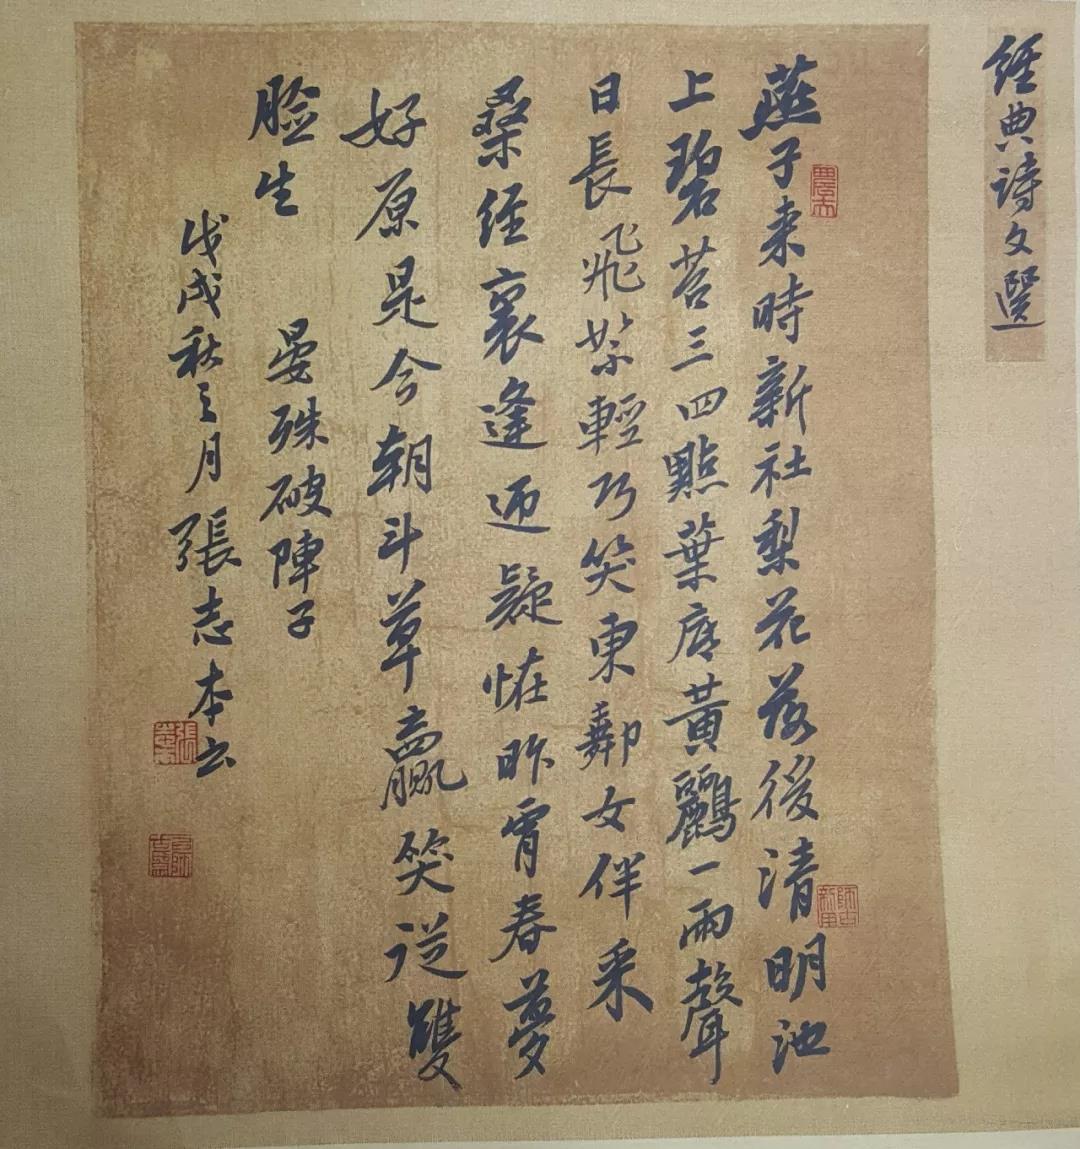 經典詩文選
燕子來時新社梨花落後清明池
上碧苔三四點葉底黃鸝一兩聲
日長飛絮輕巧笑東鄰女伴采
桑經裏逢迎疑怪昨宵春夢
好原是今朝斗草贏笑従雙
臉生
晏殊破陣子
戊戌秋之月張志本書